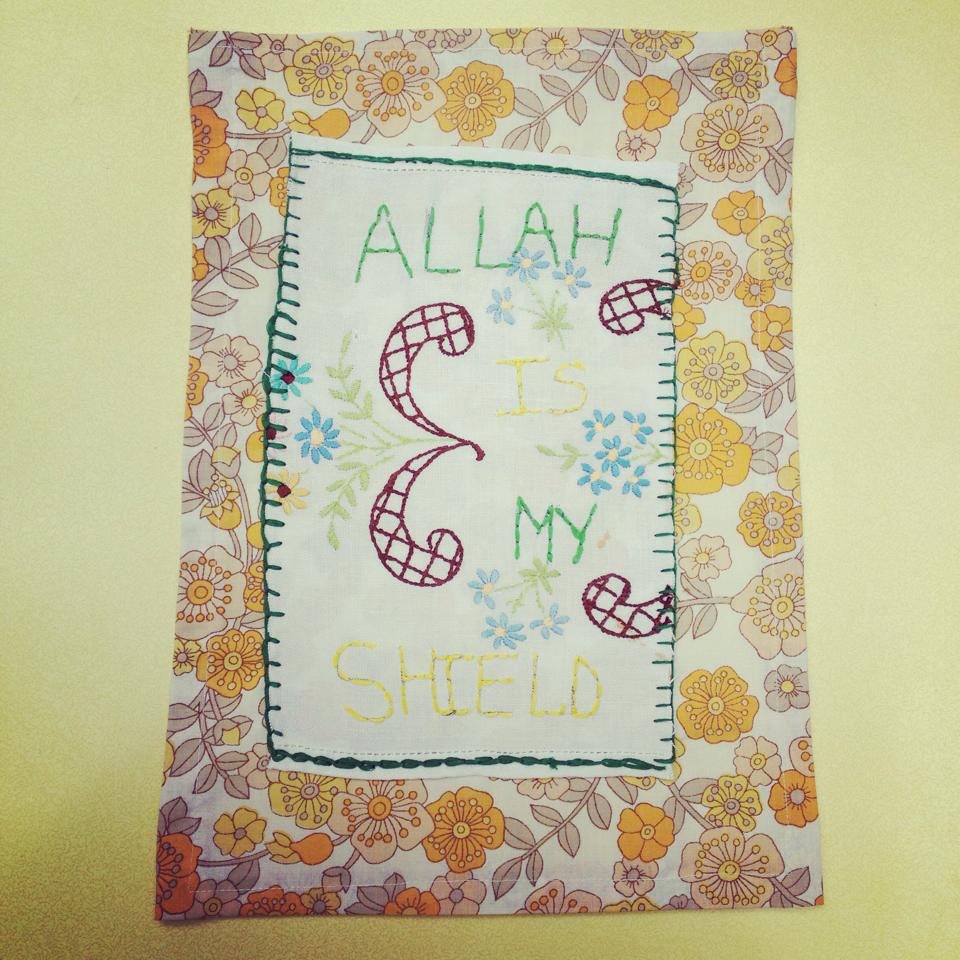 ALLAH
IS
MY
SHIELD